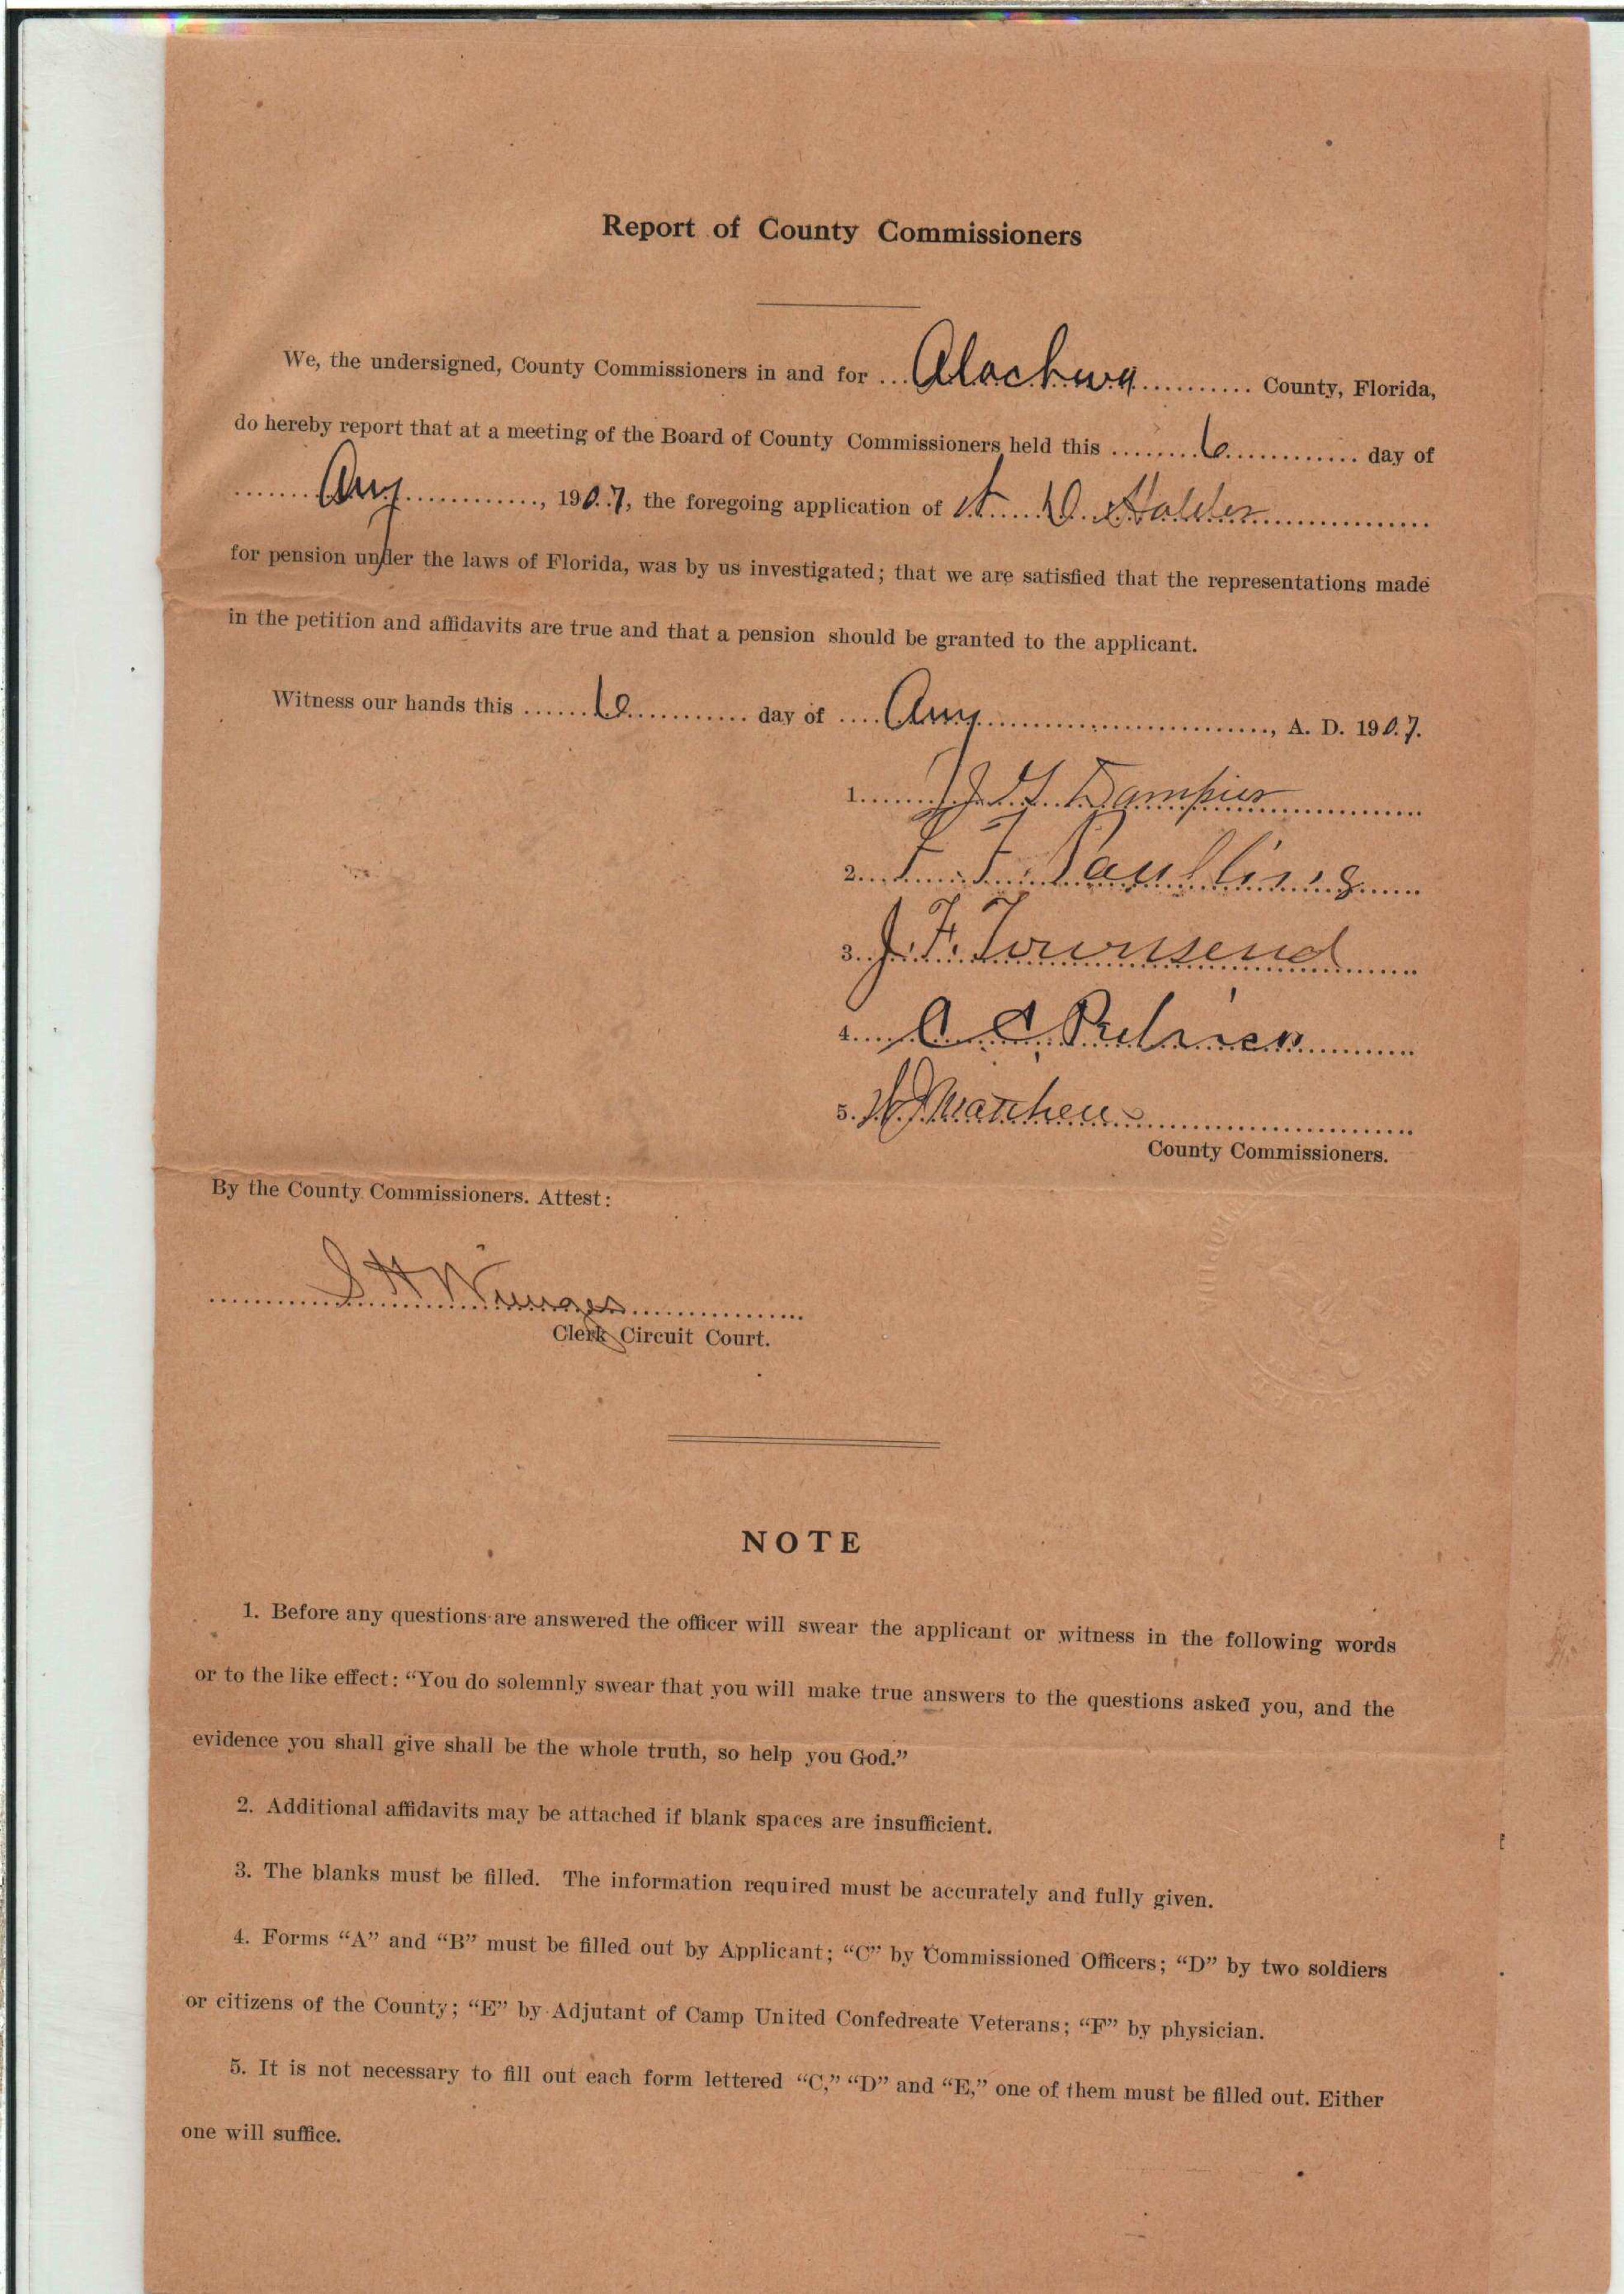 Report of County Commissioners
We, the undersigned, County Commissioners in and for ... Alachua .......... County, Florida,
do hereby report that at a meeting of the Board of County Commissioners held this ........ 6 ............ day of
....... Aug ............., 190.7, the foregoing application of .... D. Holder ................
for pension under the laws of Florida, was by us investigated; that we are satisfied that the representations made
in the petition and affidavits are true and that a pension should be granted to the applicant.
Witness our hands this ...... 6 ........... day of .... Aug ............................., A. D. 190.7.
1. Dampier
2. F. F. Paulling
3. J. F. Townsend
4.
5. Matchen
County Commissioners.
By the County Commissioners. Attest:
S H Wienges
Clerk Circuit Court.
NOTE
1. Before any questions are answered the officer will swear the applicant or witness in the following words
or to the like effect: “You do solemnly swear that you will make true answers to the questions asked you, and the
evidence you shall give shall be the whole truth, so help you God.”
2. Additional affidavits may be attached if blank spaces are insufficient.
3. The blanks must be filled. The information required must be accurately and fully given.
4. Forms “A” and “B” must be filled out by Applicant; “C” by Commissioned Officers; “D” by two soldiers
or citizens of the County; “E” by Adjutant of Camp United Confedreate Veterans; “F” by physician.
5. It is not necessary to fill out each form lettered “C,” “D” and “E,” one of them must be filled out. Either
one will suffice.